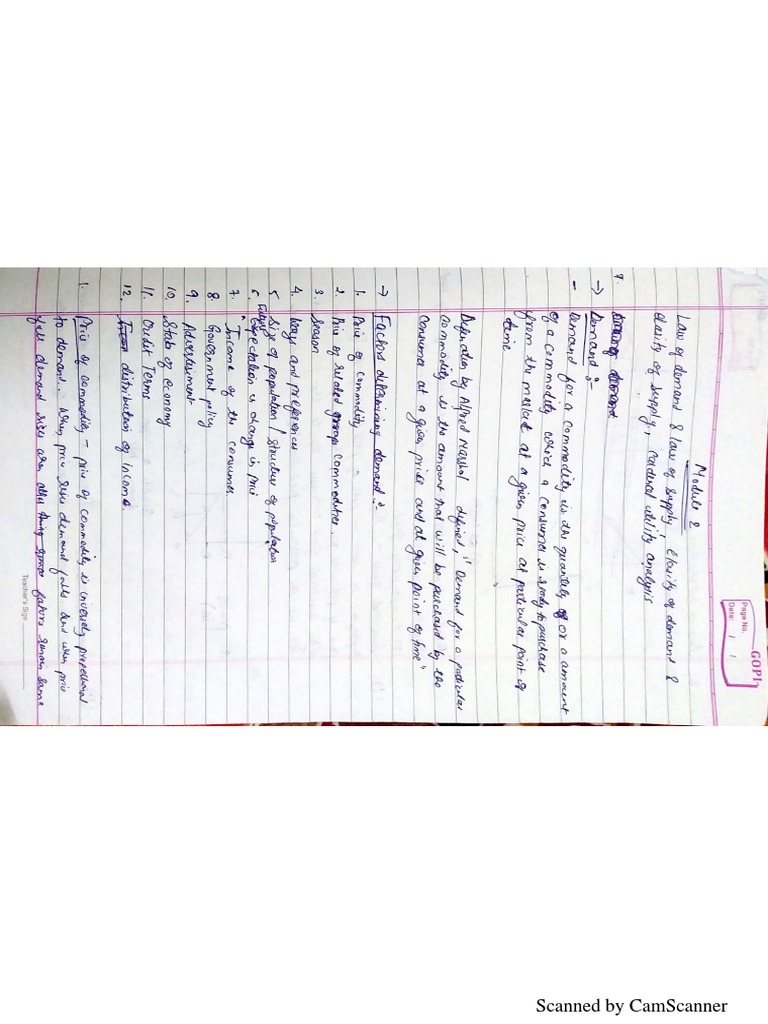 GOPI
Page No.
Date: / /
Module 2
Law of demand & law of supply, elasity of demand &
elasity of supply, cardinal utility analysis
1.
→ Demand :-
- Demand for a commodity is the quantity of or a amount
of a commodity which a consumer is ready to purchase
from the market at a given price at particular point of
time
Defination by Alfred Marshal defined, "Demand for a particular
commodity is the amount that will be purchased by the
consumer at a given price and at given point of time"
→ Factors determining demand :-
1. Price of commodity
2. Price of related commodities.
3. Season
4. and preferences
5. Size of population / structure of population
6. Future Expectation in change in price
7. Income of the consumer
8. Government policy
9. Advertisement
10. State of economy
11. Credit Terms
12. distribution of Income
1. Price of commodity - price of commodity is inversely
to demand. when price rises demand falls and when price
fall demand rises when other thing factors remain same
Teacher's Sign
Scanned by CamScanner